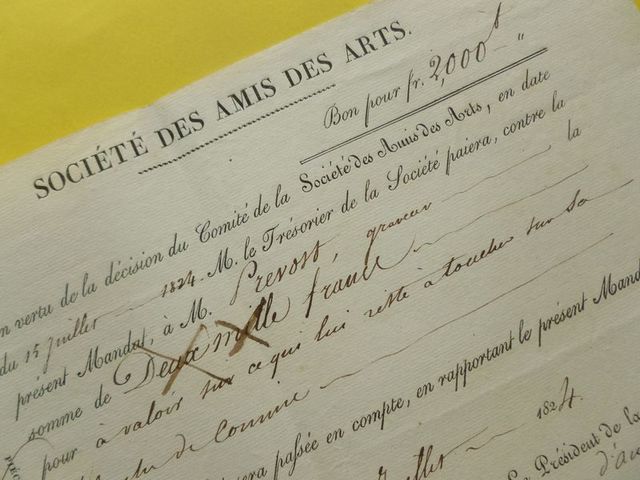 SOCIÉTÉ DES AMIS DES ARTS.
Bon pour fr. 2,000 f "
n vertu de la décision du Comité de la Société des Amis des Arts, en date
du 15 juillet 1824. M. le Trésorier de la Société paiera, contre la
présent Mandat, à M. Prevost, graveur la
somme de Deux mille francs
pour à valoir sur ce qui lui reste à toucher sur sa
de
sera passée en compte, en rapportant le présent Mand
juillet 1824.
Le Président de la
d'Ac